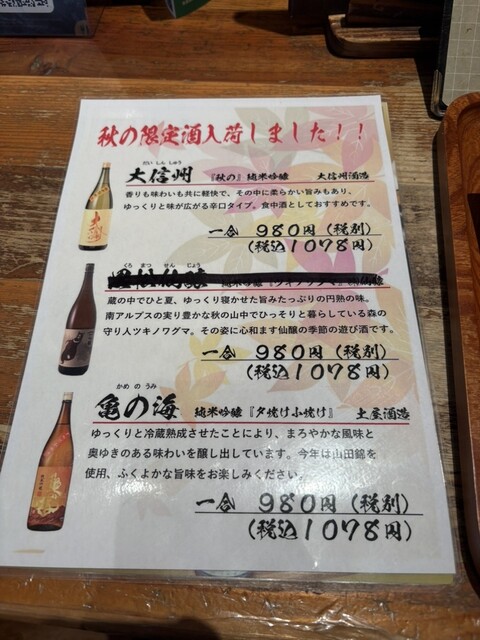 秋の限定酒入荷しました！！
だいしんしゅう
大信州 『秋の』純米吟醸 大信州酒造
香りも味わいも共に軽快で、その中に柔らかい旨みもあり、
ゆっくりと味が広がる辛口タイプ。食中酒としておすすめです。
一合 980円（税別）
（税込1078円）
くろまつせんじょう
蔵の中でひと夏、ゆっくり寝かせた旨みたっぷりの円熟の味。
南アルプスの実り豊かな秋の山中でひっそりと暮らしている森の
守り人ツキノワグマ。その姿に心和ます仙醸の季節の遊び酒です。
一合 980円（税別）
（税込1078円）
かめのうみ
亀の海 純米吟醸『夕焼け小焼け』 土屋酒造
ゆっくりと冷蔵熟成させたことにより、まろやかな風味と
奥ゆきのある味わいを醸し出しています。今年は山田錦を
使用、ふくよかな旨味をお楽しみください。
一合 980円（税別）
（税込1078円）